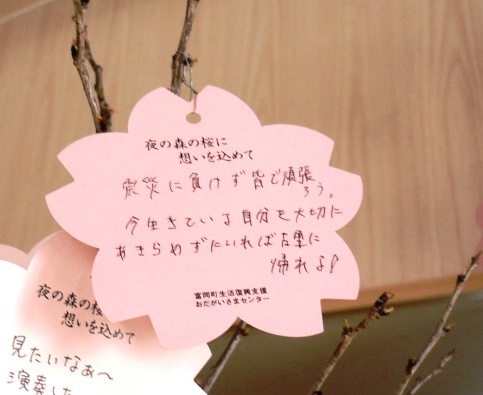 夜の森の桜に
想いを込めて
震災に負けず皆で頑張
ろう。
今生きている自分を大切に
あきらめずにいれば古里に
帰れる!
富岡町生活復興支援
おだがいさまセンター
夜の森の桜
想いを込めて
見たいなぁ〜
演奏した